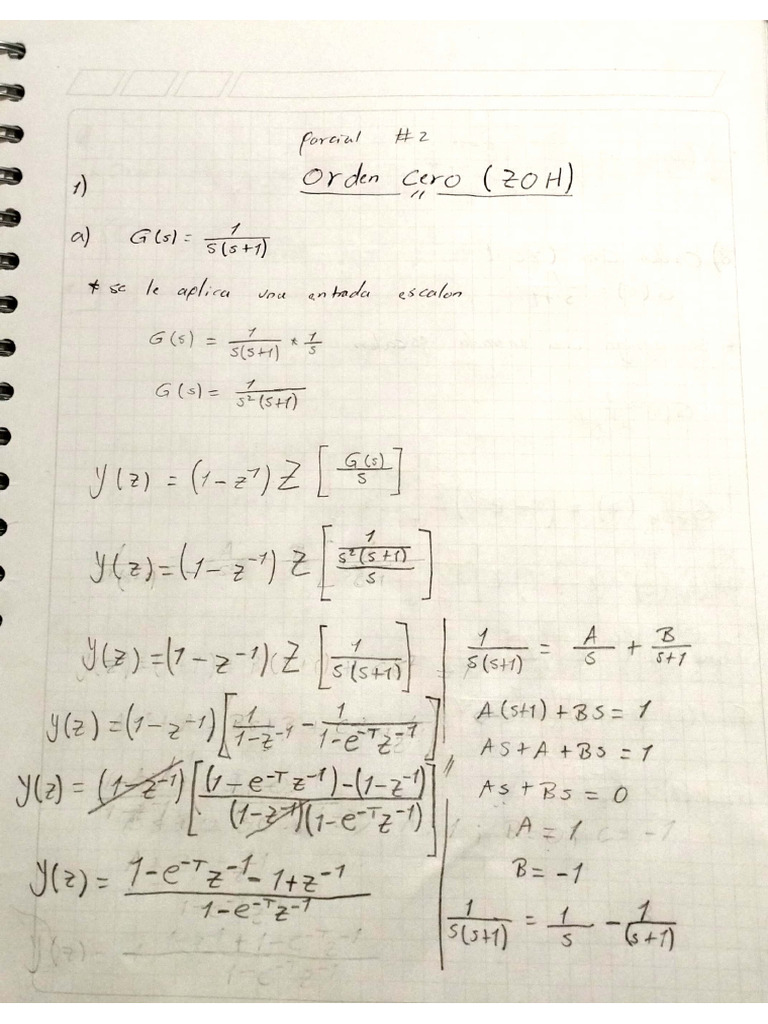 Parcial #2
1) Orden Cero (ZOH)
a) G(s) = 1/(s(s+1))
* se le aplica una entrada escalon
G(s) = 1/(s(s+1)) * 1/s
G(s) = 1/(s²(s+1))
y(z) = (1-z⁻¹) Z [G(s)/s]
y(z) = (1-z⁻¹) Z [(1/(s²(s+1)))/s]
y(z) = (1-z⁻¹) Z [1/(s(s+1))]
y(z) = (1-z⁻¹) [1/(1-z⁻¹) - 1/(1-e⁻ᵀz⁻¹)]
y(z) = (1-z⁻¹) [((1-e⁻ᵀz⁻¹)-(1-z⁻¹))/((1-z⁻¹)(1-e⁻ᵀz⁻¹))]
y(z) = (1-e⁻ᵀz⁻¹-1+z⁻¹)/(1-e⁻ᵀz⁻¹)
1/(s(s+1)) = A/s + B/(s+1)
A(s+1) + Bs = 1
As + A + Bs = 1
As + Bs = 0
A = 1
B = -1
1/(s(s+1)) = 1/s - 1/(s+1)